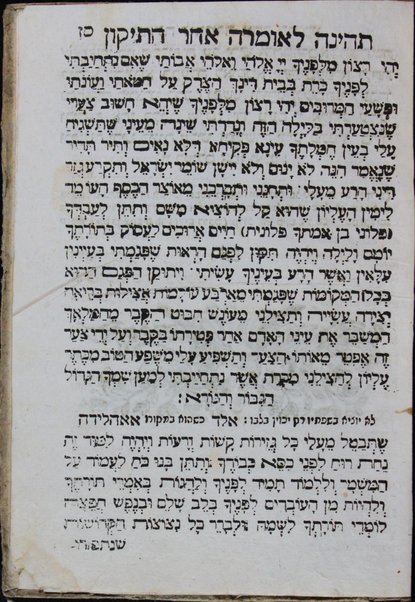 תהינה לאומרה אחר התיקון סז
יהי רצון מלפניך יי אלהי ואלהי אבותי שאם נתחייבתי
לפניך כרת בבית דינך הצדק על חטאתי ועונתי
ופשעי המרובים יהי רצון מלפניך שיהא חשוב צערי
שנצטערתי בלילה הזה ונדדתי שינה מעיני שתשגיח
עלי בעין חמלתך עינא פקיחא דלא נאים ותיר תדיר
שנאמר הנה לא ינום ולא יישן שומר ישראל ותקרע גזר
דיני הרע מעלי ותחנני ותקרבני מאוצר הכסף העומד
לימין העליון שהוא קל להוציא משם ותתן לעבדך
(פלוני בן אמתך פלונית) חיים ארוכים לעסוק בתורתך
יומם ולילה ויהיה תקון לפגם הראות שפגמתי בעיינין
עלאין ואשר הרע בעיניך עשיתי ויתוקן הפגם ההוא
בכל המקומות שפגמתי מארבע עולמות אצילות בריאה
יצירה עשייה ותצילני מעונש חבוט הקבר מהמלאך
המשבר את עיני האדם אחר פטירתו בקבר ועל ידי צער
זה אפטר מאותו הצער ותשפיע עלי משפע הטוב מכתר
עליון להצילני מכרת אשר נתחייבתי למען שמך הגדול
הגבור והנורא:
לא יוציא בשפתיו רק יכוין בלבו: אלד כשהוא בנקוח אאהלידה
שתבטל מעלי כל גזירות קשות ורעות ויהיה לימוד זה
נחת רוח לפני כסא כבודך ותתן בנו כח לעמוד על
המשמר וללמוד תמיד לפניך ולהגות באמרי תורתך
ולהיות מן העובדים לפניך בלב שלם ובנפש חפצה
לומדי תורתך לשמה ולברר כל ניצוצות הקדושות
שנתפזרו